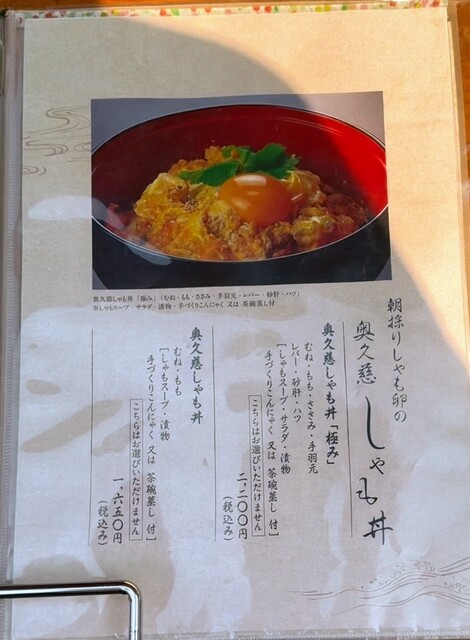 奥久慈しゃも丼「極み」(むね・もも・ささみ・手羽元・レバー・砂肝・ハツ)
※しゃもスープ・サラダ・漬物・手づくりこんにゃく 又は 茶碗蒸し付
朝採りしゃも卵の
奥久慈しゃも丼
奥久慈しゃも丼「極み」
むね・もも・ささみ・手羽元
レバー・砂肝・ハツ
[しゃもスープ・サラダ・漬物
手づくりこんにゃく 又は 茶碗蒸し 付]
こちらはお選びいただけません
二、二〇〇円
(税込み)
奥久慈しゃも丼
むね・もも
[しゃもスープ・漬物
手づくりこんにゃく 又は 茶碗蒸し 付]
こちらはお選びいただけません
一、六五〇円
(税込み)